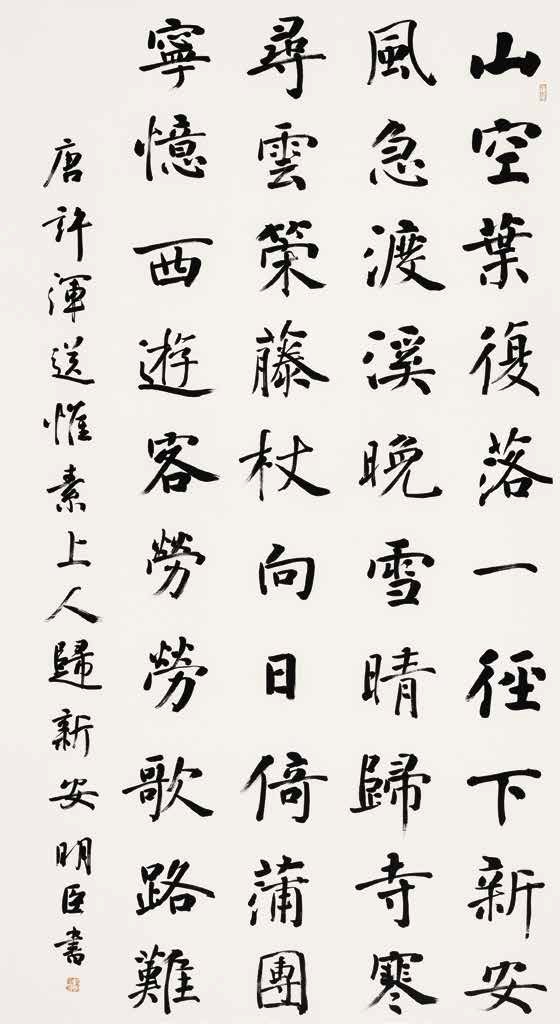 山空葉復落一徑下新安
風急渡溪晚雪晴歸寺寒
尋雲策藤杖向日倚蒲團
寧憶西遊客勞勞歌路難
唐許渾送惟素上人歸新安明臣書